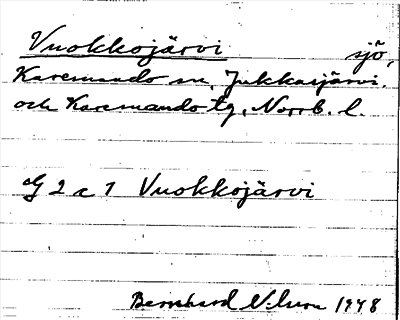 Vuokkojärvi sjö,
Karemando sn, Jukkasjärvi.
och Karemando tg, Norrb. l.
G 2 a 1 Vuokkojärvi
Bernhard Nilsson 1948